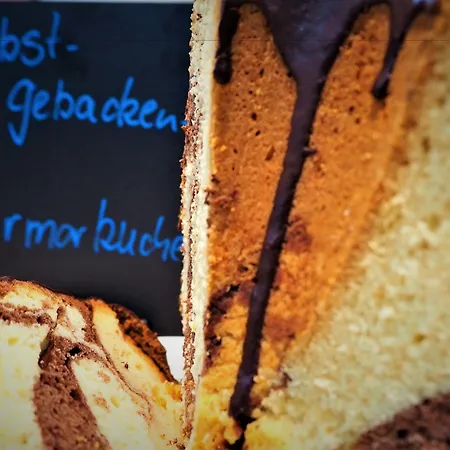 lbst-
gebacken
rmorkuche